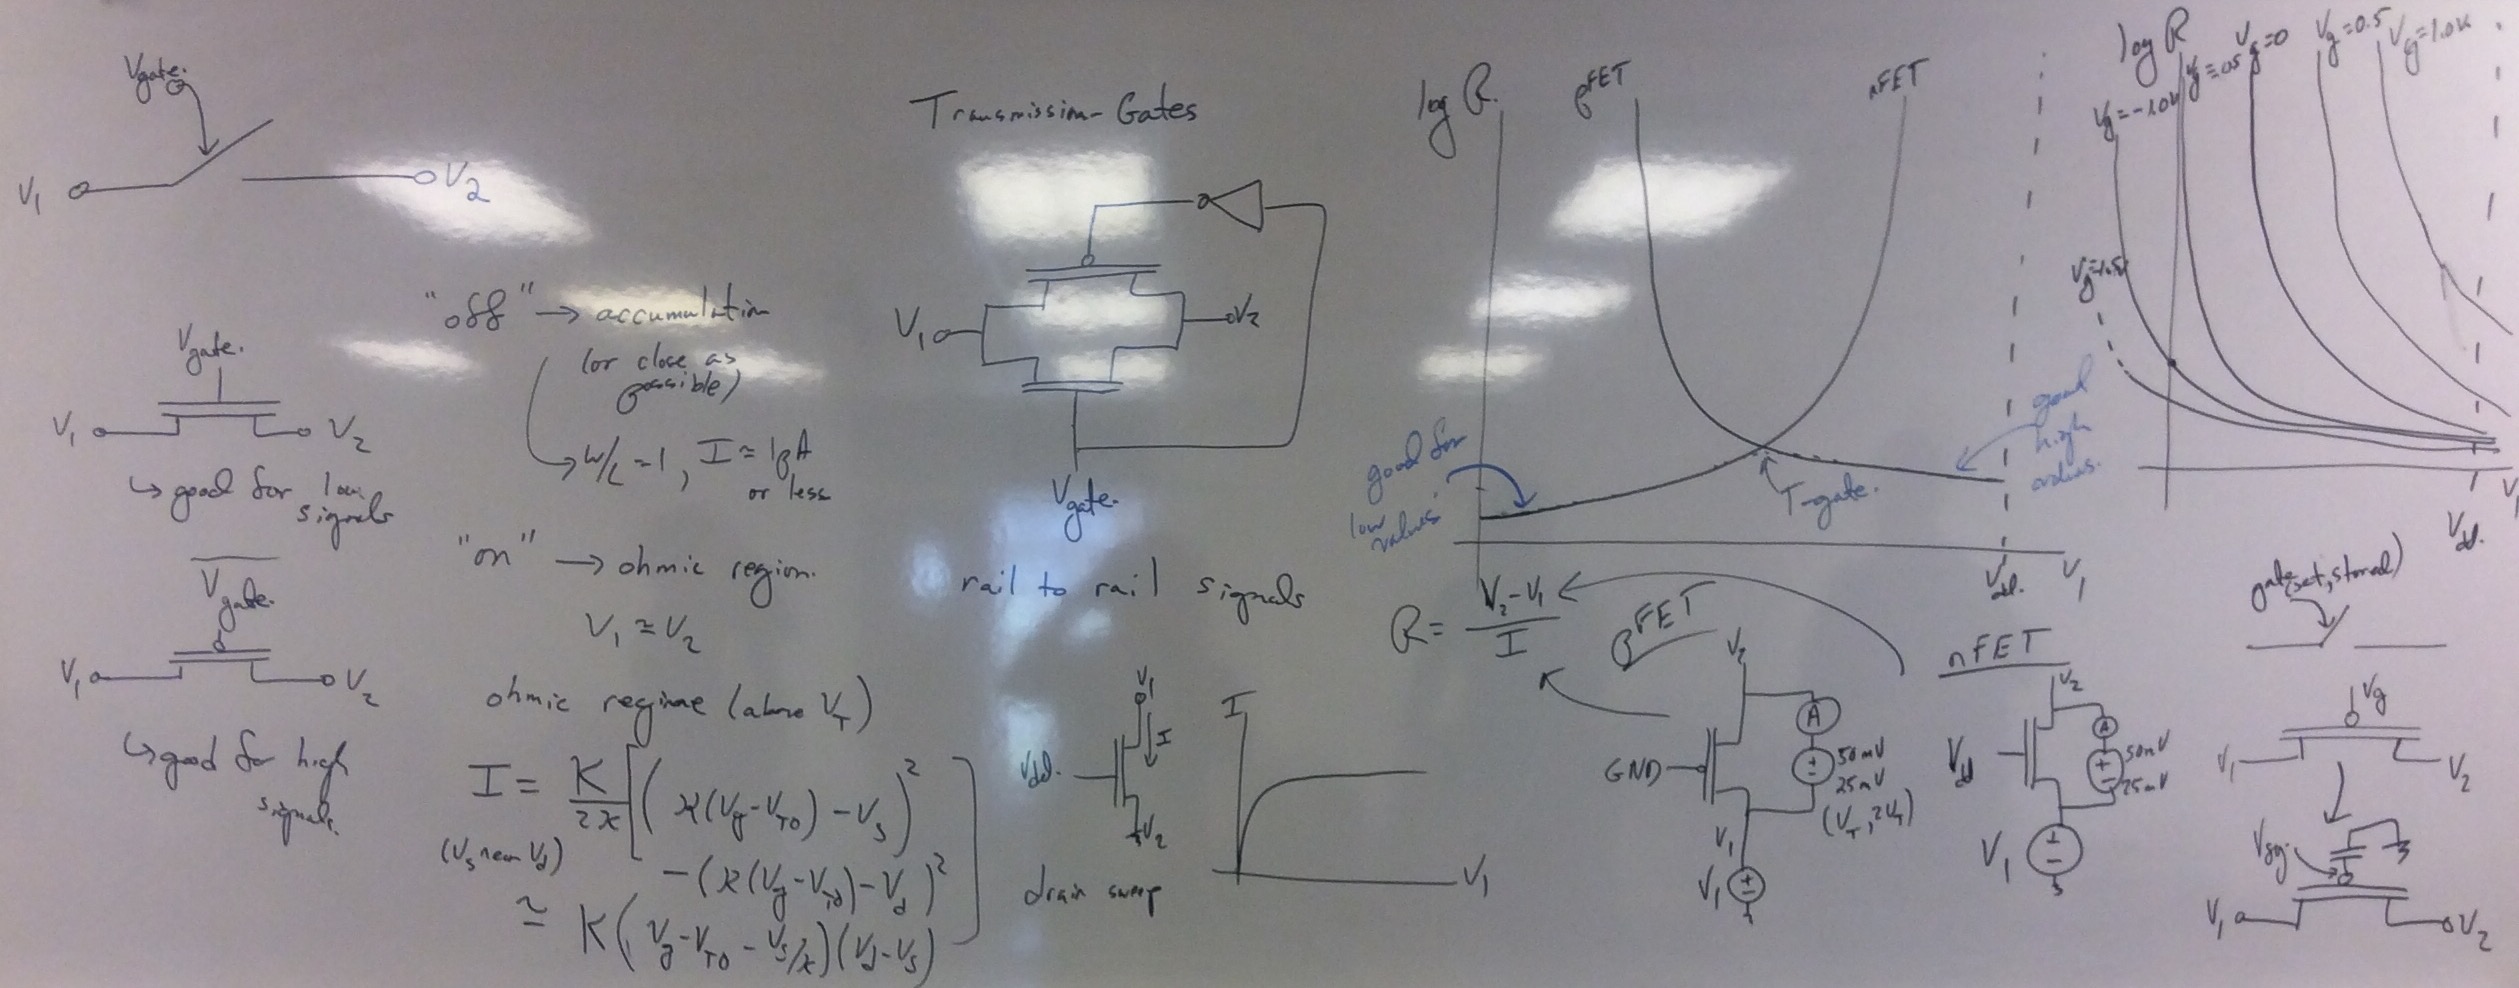 Vgate.
V1
V2
Vgate.
V1
V2
↳ good for low
signals
Vgate.
V1
V2
↳ good for high
signals.
"off" → accumulation
(or close as
possible)
W/L = 1, I ≈ 1pA
or less
"on" → ohmic region.
V1 ≈ V2
ohmic regime (above VT)
I = K/2κ [(κ(Vg-VT0) - Vs)²
(Vs near Vd)
- (κ(Vg-VT0) - Vd)²]
≃ K(Vg-VT0 - Vs/κ)(Vd-Vs)
Transmission-Gates
V1
V2
Vgate.
rail to rail signals
V1
I
Vdd.
V2
drain sweep
I
V1
log R.
pFET
nFET
good for
low
values
T-gate.
good
high
Vdd.
V1
R = V2-V1 / I
pFET
V2
A
GND
50mV
25mV
(VT, 2VT)
V1
V1
nFET
V2
A
Vdd
50mV
25mV
V1
log R
Vg=-1.0V
Vg=0
Vg=0.5
Vg=1.0V
Vdd.
gate(set, stored)
Vg
V1
V2
V1
V2